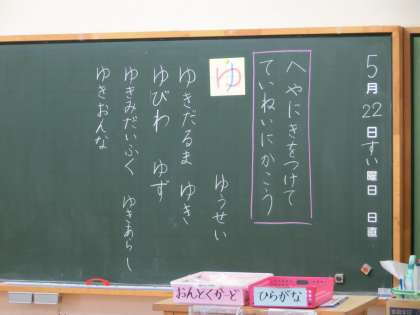 5月22日すい曜日 日直
へやにきをつけて
ていねいにかこう
ゆ
ゆうせい
ゆきだるま ゆき
ゆびわ ゆず
ゆきみだいふく ゆきあらし
ゆきおんな
おんどくカード
ひらがな